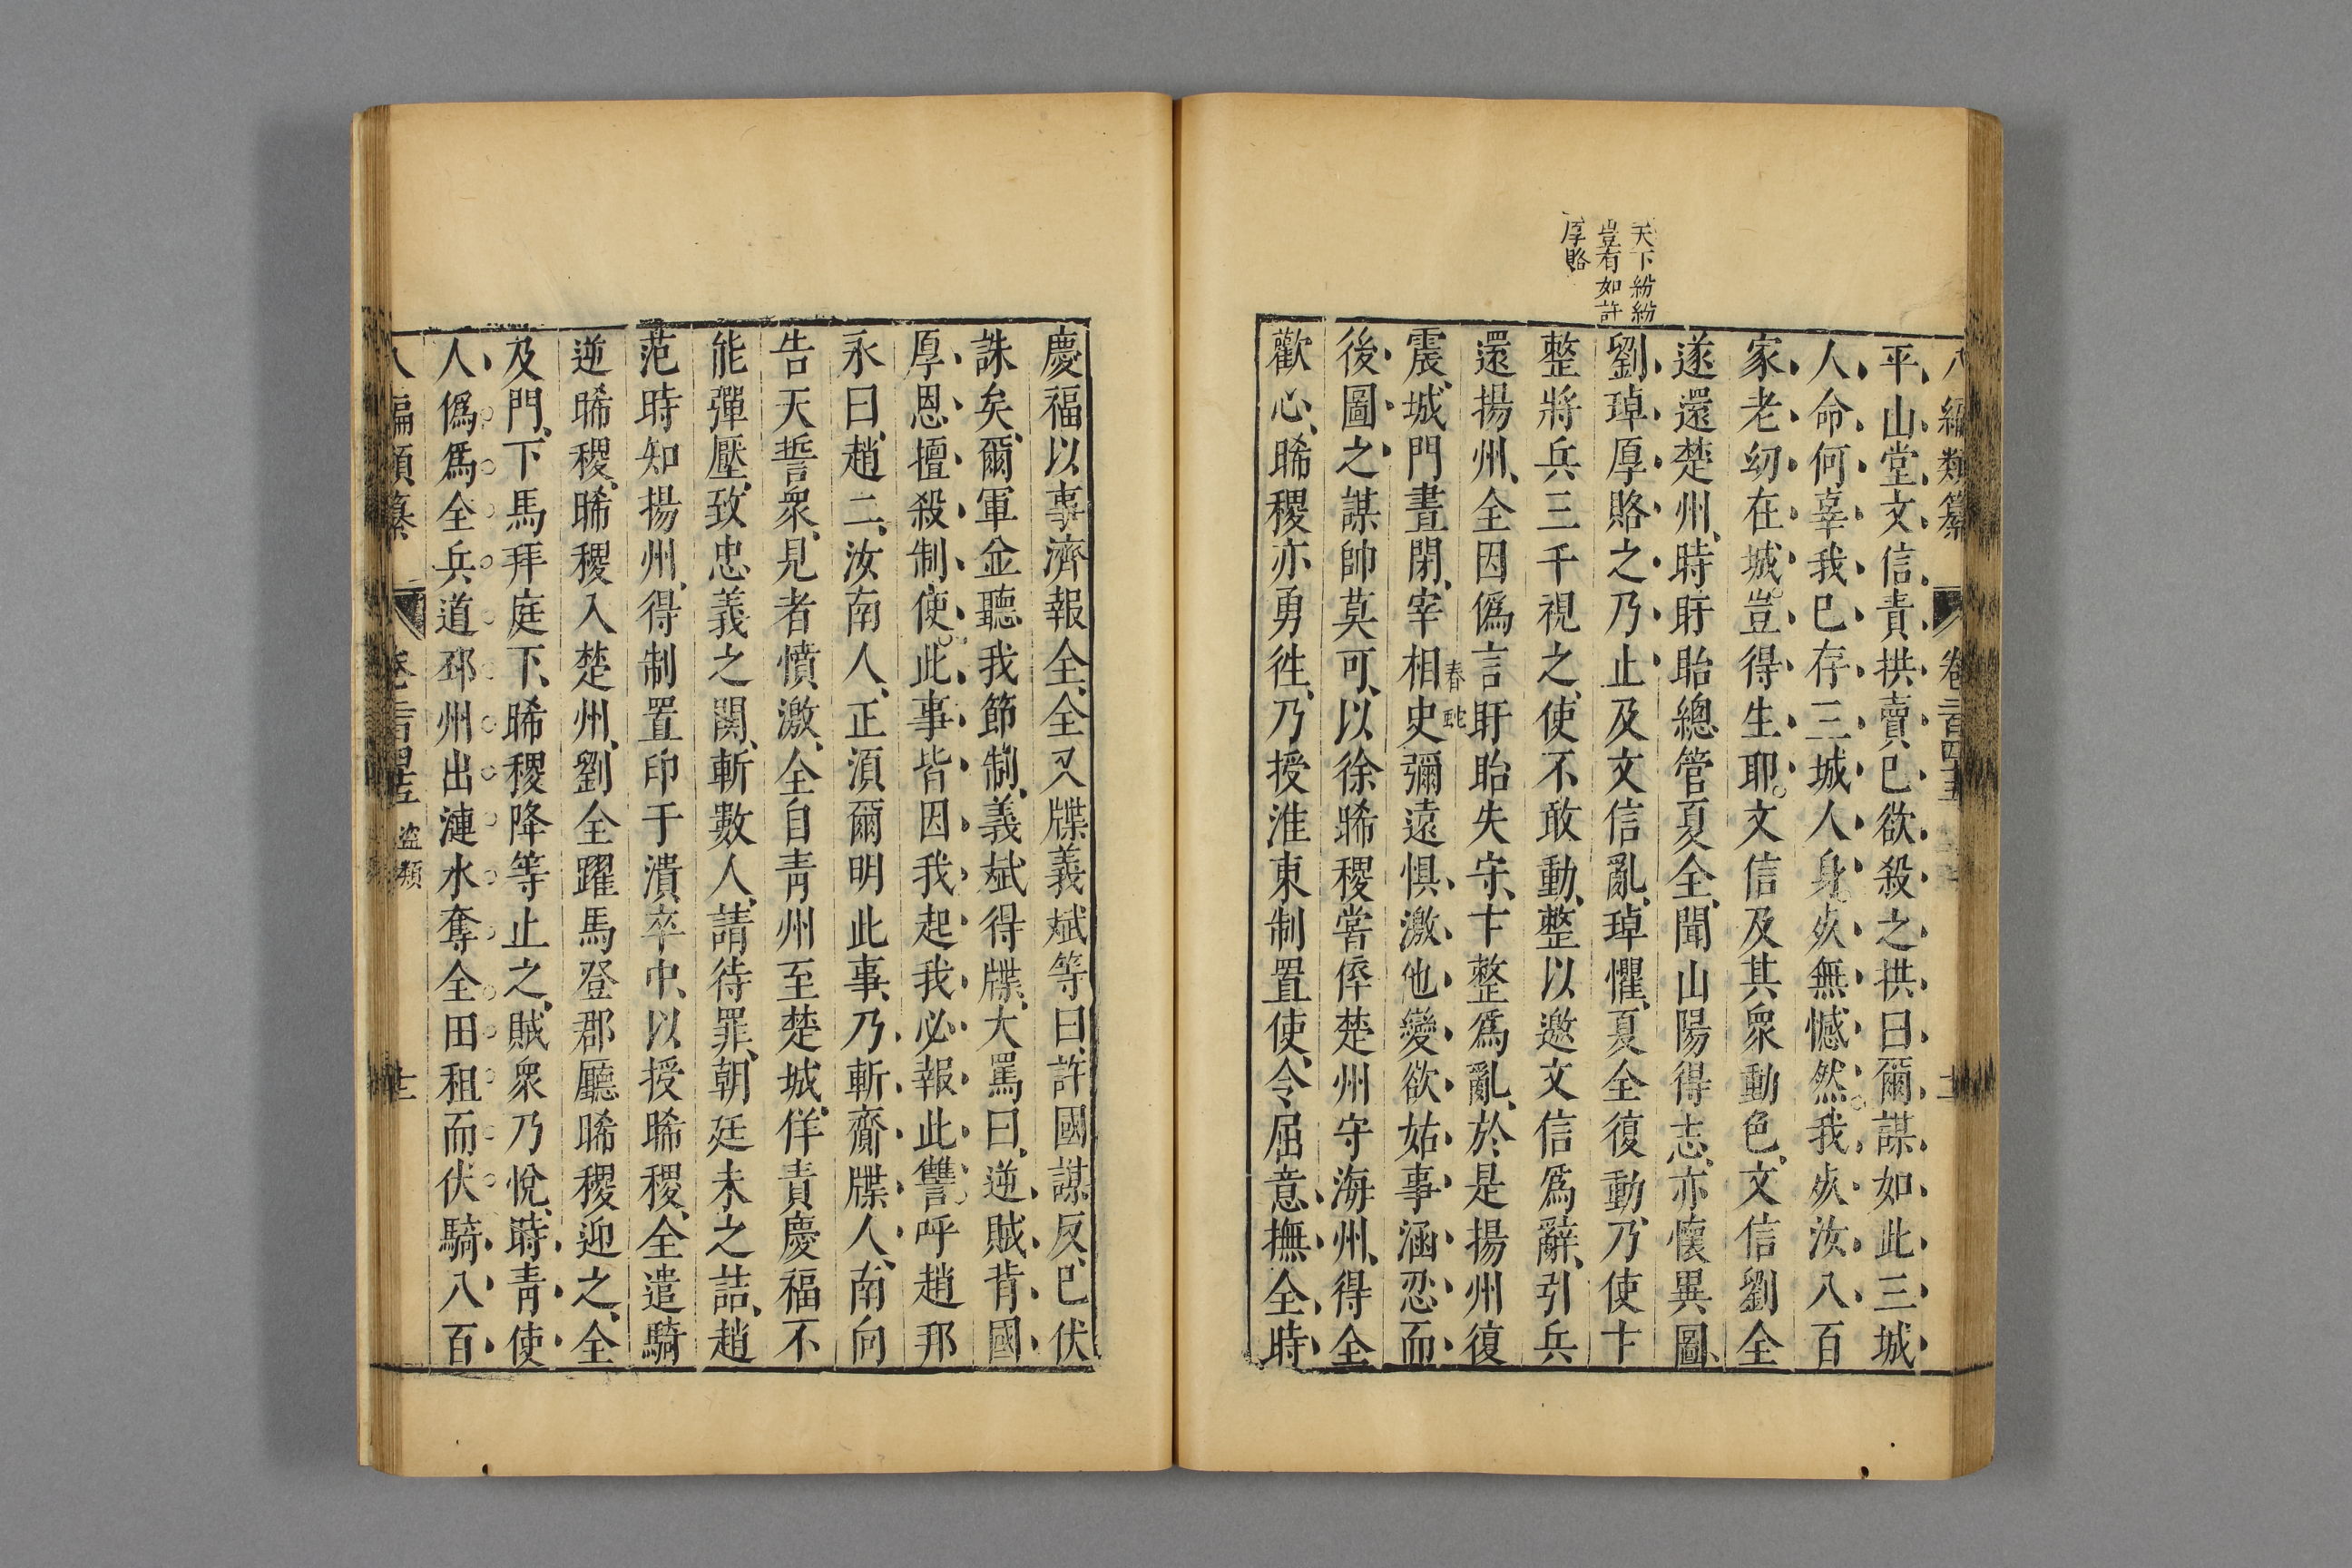 八編類纂 卷二百四十五
平山堂文信責拱賣已欲殺之拱曰爾謀如此三城
人命何辜我已存三城人身死無憾然我死汝八百
家老幼在城豈得生耶文信及其衆動色文信劉全
遂還楚州時盱眙總管夏全聞山陽得志亦懷異圖
劉琸厚賂之乃止及文信亂琸懼夏全復動乃使卞
整將兵三千視之使不敢動整以邀文信爲辭引兵
還揚州全因僞言盱眙失守卞整爲亂於是揚州復
震城門晝閉宰相史彌遠懼激他變欲姑事涵忍而
後圖之謀帥莫可以徐晞稷嘗倅楚州守海州得全
歡心晞稷亦勇徃乃授淮東制置使令屈意撫全時
天下紛紛
豈有如許
厚賂
慶福以事濟報全全又牒義斌等曰許國謀反已伏
誅矣爾軍金聽我節制義斌得牒大罵曰逆賊背國
厚恩擅殺制使此事皆因我起我必報此讐呼趙邦
永曰趙二汝南人正須爾明此事乃斬齎牒人南向
告天誓衆見者憤激全自青州至楚城佯責慶福不
能彈壓致忠義之閧斬數人請待罪朝廷未之詰趙
范時知揚州得制置印于潰卒中以授晞稷全遣騎
逆晞稷晞稷入楚州劉全躍馬登郡廳晞稷迎之全
及門下馬拜庭下晞稷降等止之賊衆乃悅時青使
人僞爲全兵道邳州出漣水奪全田租而伏騎八百
八編類纂 卷二百四十五 盜類 十二